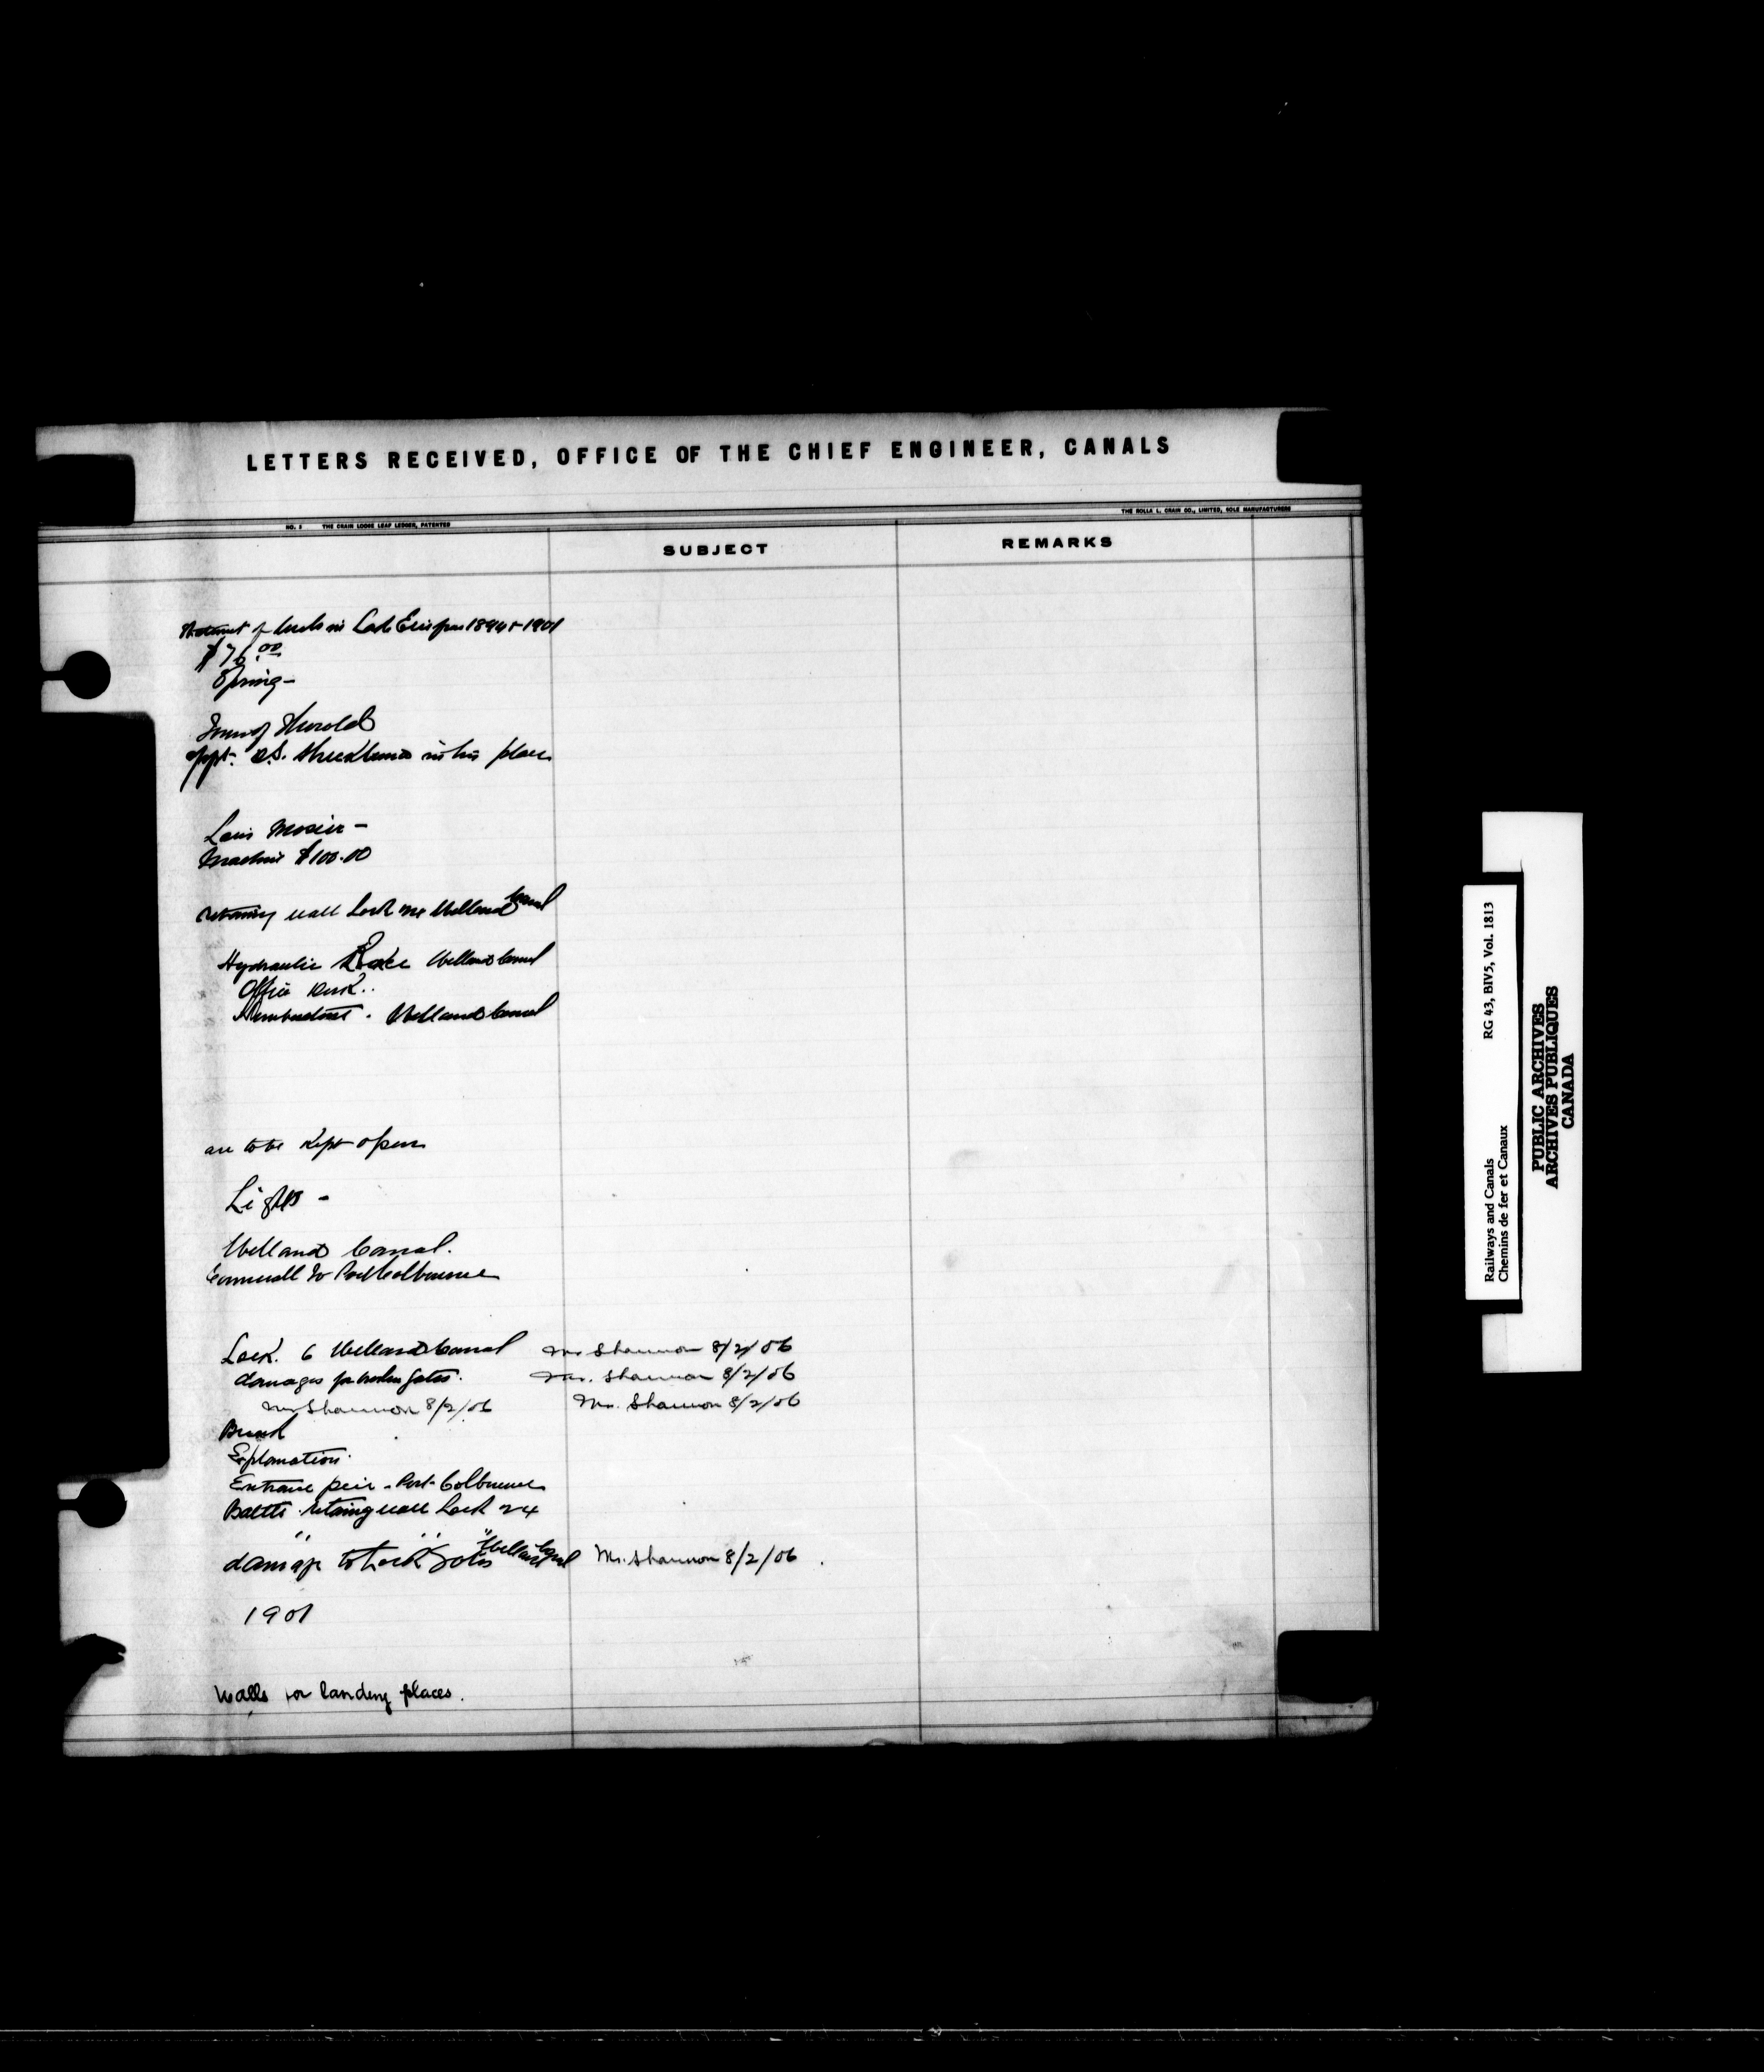 LETTERS RECEIVED, OFFICE OF THE CHIEF ENGINEER, CANALS
NO. 5 THE CRAIN LOOSE LEAF LEDGER, PATENTED
THE ROLLA L. CRAIN CO., LIMITED, SOLE MANUFACTURERS
SUBJECT REMARKS
in Lake Erie from 1894 - 1901
$76.00
Spring -
Town of Thorold
appt. in his place
Louis Mosier -
Machine $100.00
retaining wall Lock one Welland Canal
Hydraulic Race Welland Canal
Office Desk..
Welland Canal
are to be Kept open
Lights -
Welland Canal.
Cornwall to Port Colbourne
Lock. 6 Welland Canal Mr Shannon 8/2/06
damages for broken gates. Mr. Shannon 8/2/06
Mr Shannon 8/2/06 Mr. Shannon 8/2/06
Explanation.
Entrance peir - Port Colbourne
retaing wall Lock 24
" " "
damage to Lock Gates Welland Canal Mr. Shannon 8/2/06.
1901
Walls for landing places.
Railways and Canals RG 43, BIV5, Vol. 1813
Chemins de fer et Canaux
PUBLIC ARCHIVES
ARCHIVES PUBLIQUES
CANADA